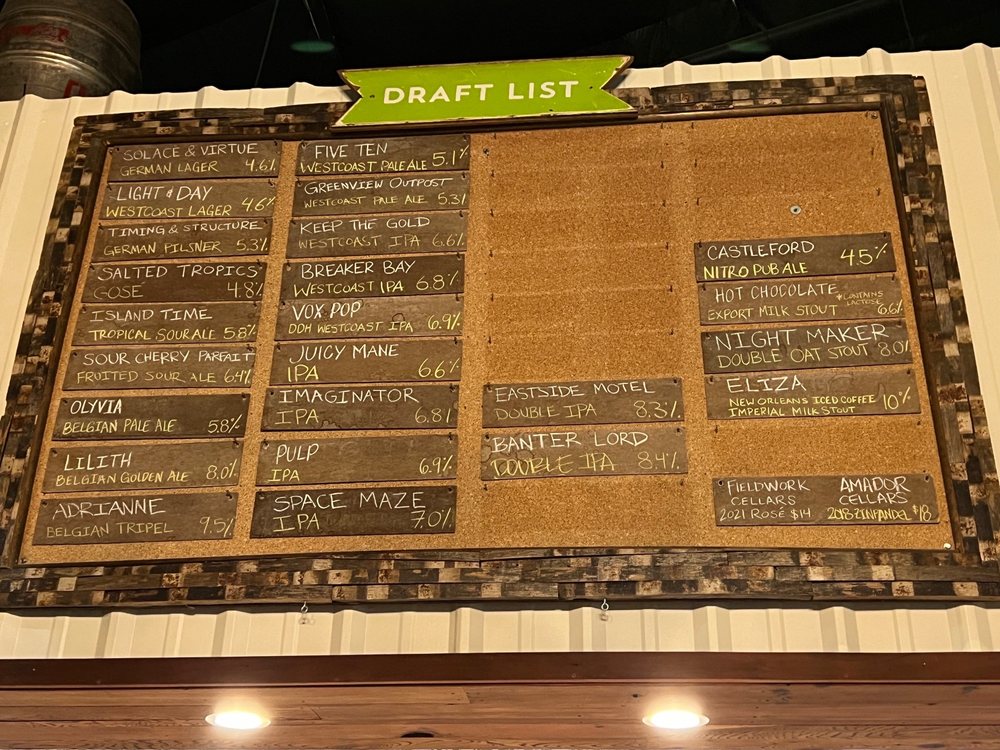 DRAFT LIST
SOLACE & VIRTUE
GERMAN LAGER 4.6%
LIGHT & DAY
WESTCOAST LAGER 4.6%
TIMING & STRUCTURE
GERMAN PILSNER 5.3%
SALTED TROPICS
GOSE 4.8%
ISLAND TIME
TROPICAL SOUR ALE 5.8%
SOUR CHERRY PARFAIT
FRUITED SOUR ALE 6.4%
OLYVIA
BELGIAN PALE ALE 5.8%
LILITH
BELGIAN GOLDEN ALE 8.0%
ADRIANNE
BELGIAN TRIPEL 9.5%
FIVE TEN
WESTCOAST PALE ALE 5.1%
GREENVIEW OUTPOST
WESTCOAST PALE ALE 5.3%
KEEP THE GOLD
WESTCOAST IPA 6.6%
BREAKER BAY
WESTCOAST IPA 6.8%
VOX POP
DDH WESTCOAST IPA 6.9%
JUICY MANE
IPA 6.6%
IMAGINATOR
IPA 6.8%
PULP
IPA 6.9%
SPACE MAZE
IPA 7.0%
EASTSIDE MOTEL
DOUBLE IPA 8.3%
BANTER LORD
DOUBLE IPA 8.4%
CASTLEFORD
NITRO PUB ALE 4.5%
HOT CHOCOLATE *CONTAINS LACTOSE
EXPORT MILK STOUT 6.6%
NIGHT MAKER
DOUBLE OAT STOUT 8.0%
ELIZA
NEW ORLEANS ICED COFFEE
IMPERIAL MILK STOUT 10%
FIELDWORK
CELLARS
2021 ROSÉ $14
AMADOR
CELLARS
2018 ZINFANDEL $18